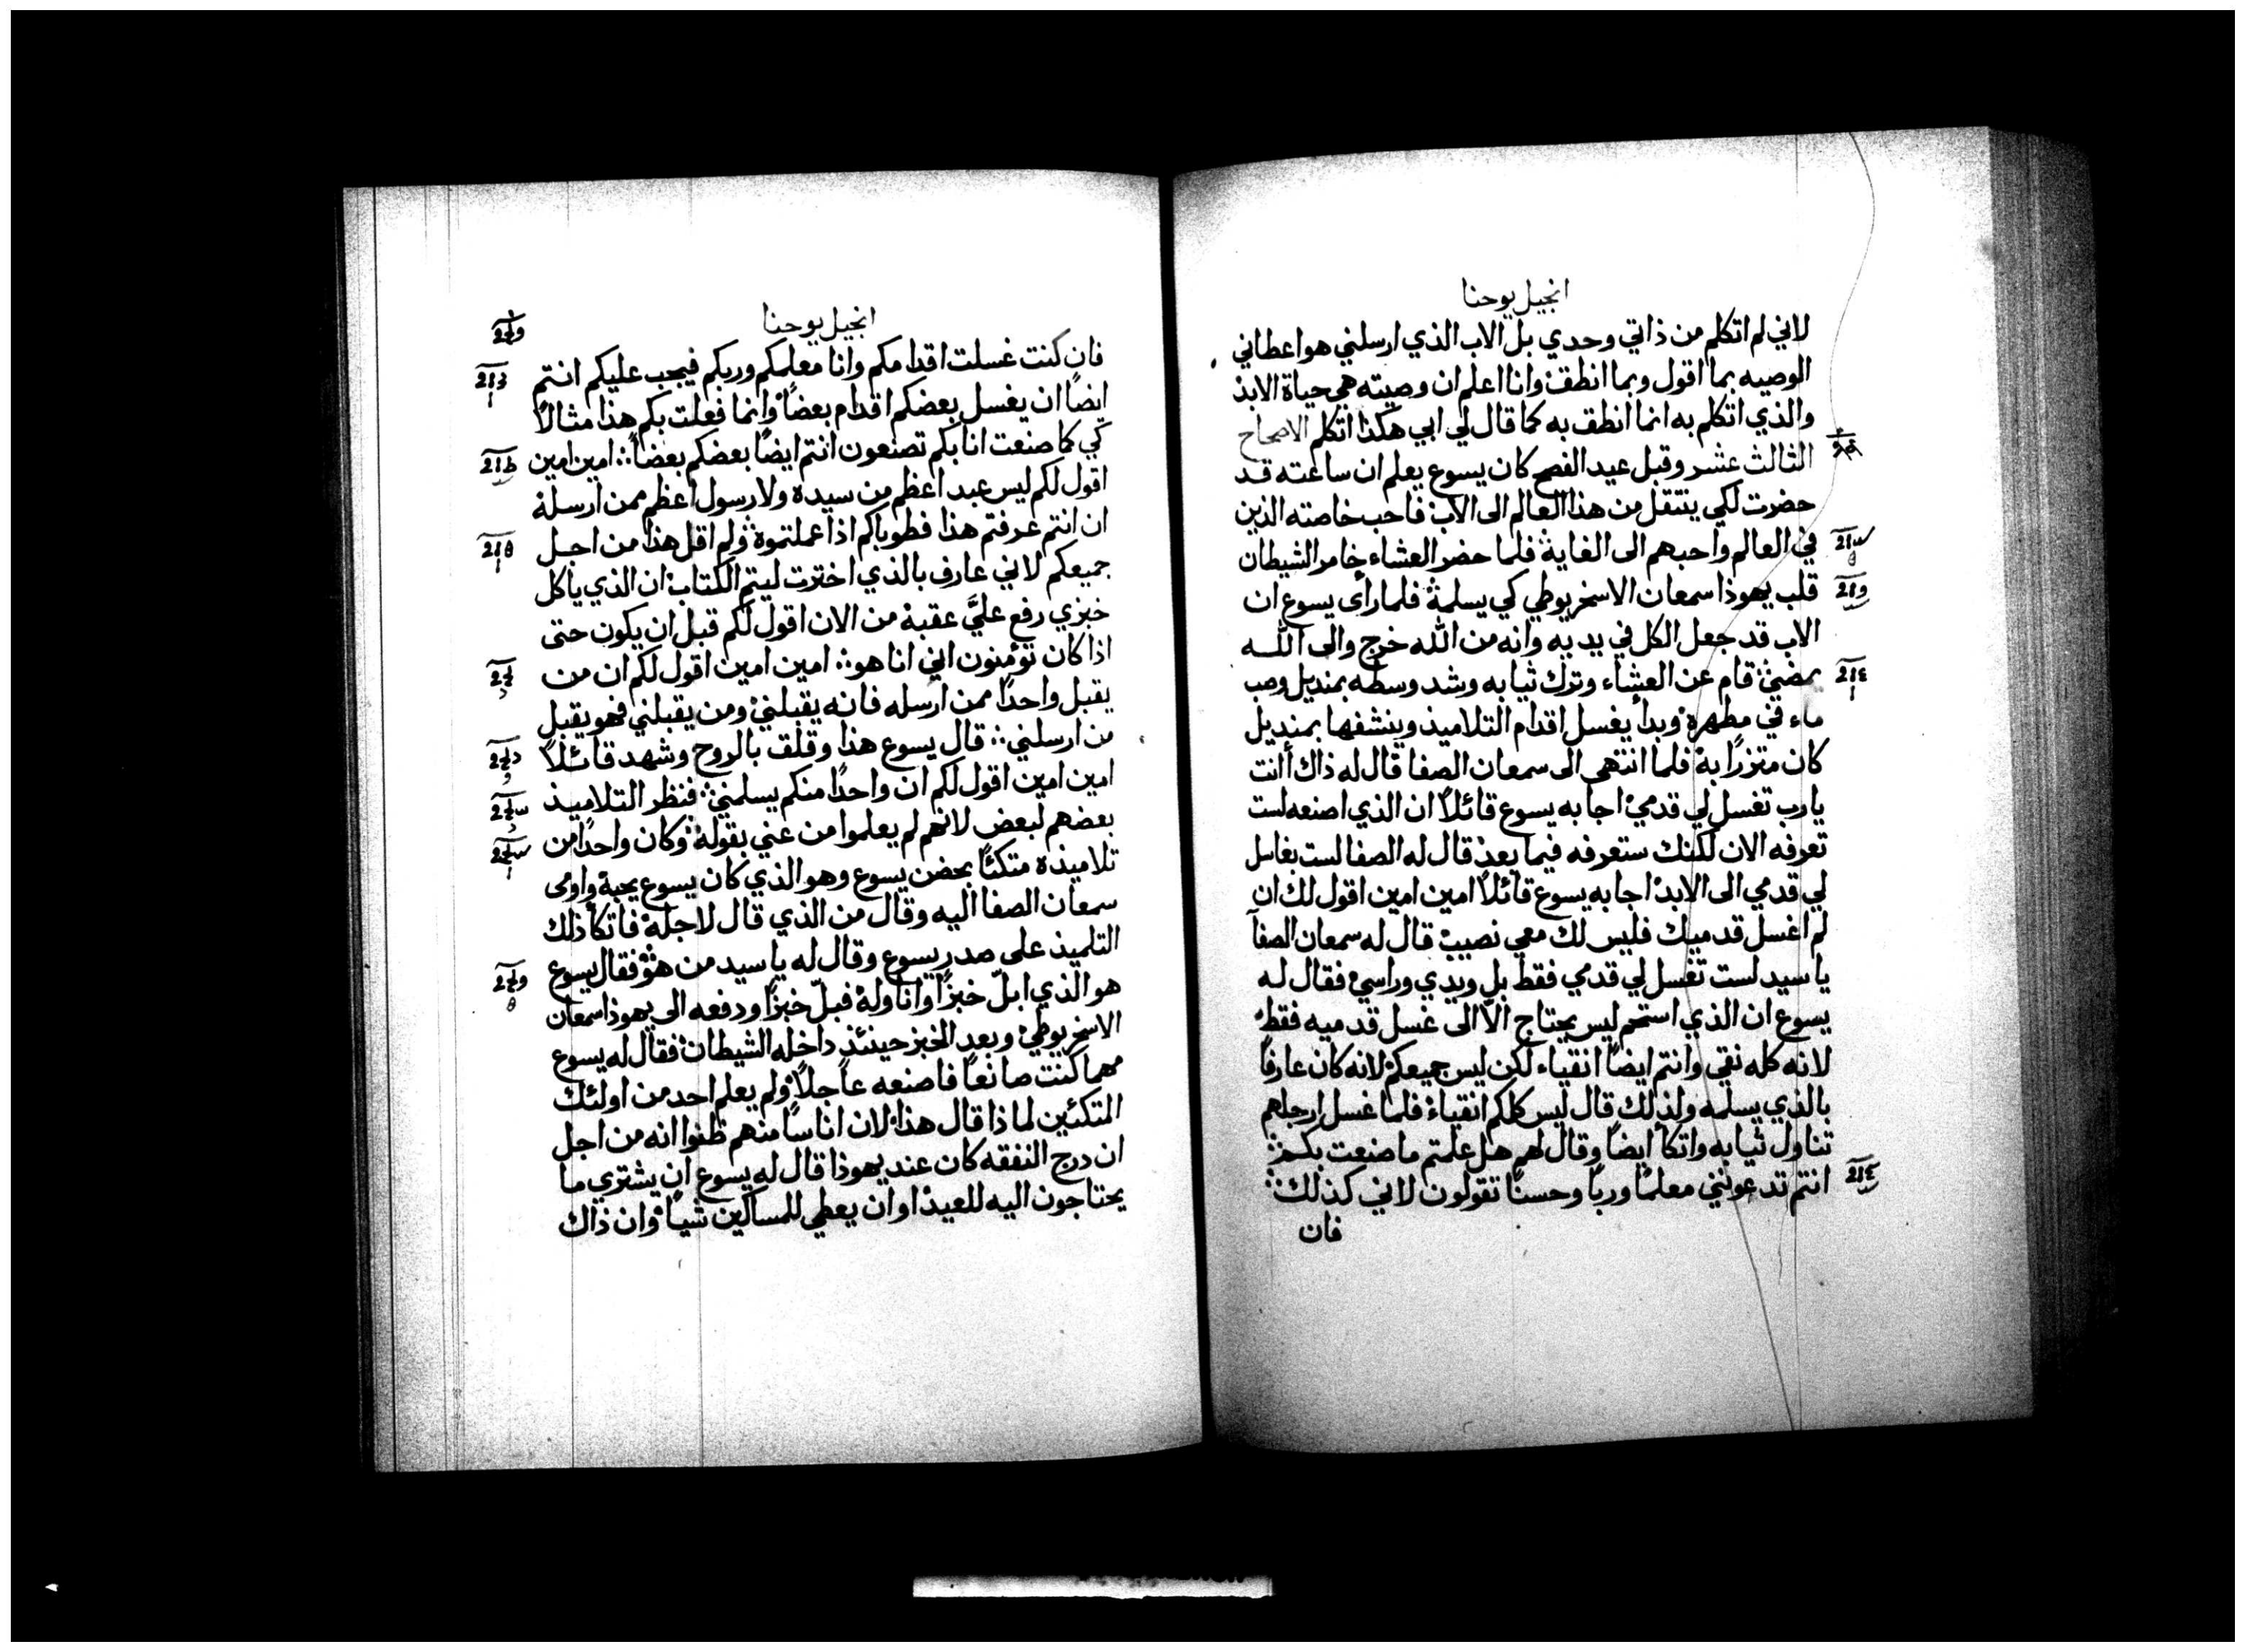 انجيل يوحنا
لاني لم اتكلم من ذاتي وحدي بل الاب الذي ارسلني هو اعطاني
الوصيه بما اقول وبما انطق وانا اعلم ان وصيته هي حياة الابد
والذي اتكلم به انما انطق به كما قال لي ابي هكذا اتكلم الاصحاح
الثالث عشر وقبل عيد الفصح كان يسوع يعلم ان ساعته قد
حضرت لكي ينتقل من هذا العالم الى الاب فاحب خاصته الذين
في العالم واحبهم الى الغاية فلما حضر العشاء خامر الشيطان
قلب يهوذا سمعان الاسخريوطي كي يسلمة فلما رأى يسوع ان
الاب قد جعل الكل في يديه وانه من الله خرج والى الله
يمضي قام عن العشاء وترك ثيابه وشد وسطه بمنديل وصب
ماء في مطهرة وبدأ يغسل اقدام التلاميذ وينشفها بمنديل
كان متزرًا به فلما انتهى الى سمعان الصفا قال له ذاك أانت
يارب تغسل لي قدمي اجابه يسوع قائلاً ان الذي اصنعه لست
تعرفه الان لكنك ستعرفه فيما بعد قال له الصفا لست بغاسل
لي قدمي الى الابد اجابه يسوع قائلاً امين امين اقول لك ان
لم اغسل قدميك فليس لك معي نصيب قال له سمعان الصفا
يا سيد لست تغسل لي قدمي فقط بل ويدي وراسي فقال له
يسوع ان الذي استحم ليس يحتاج الا الى غسل قدميه فقط
لانه كله نقي وانتم ايضًا انقياء لكن ليس جميعكم لانه كان عارفًا
بالذي يسلمه ولذلك قال ليس كلكم انقياء فلما غسل ارجلهم
تناول ثيابه واتكأ ايضًا وقال لهم هل علمتم ما صنعت بكم
انتم تدعونني معلمًا وربًا وحسنًا تقولون لاني كذلك
فان
انجيل يوحنا
فان كنت غسلت اقدامكم وانا معلمكم وربكم فيجب عليكم انتم
ايضًا ان يغسل بعضكم اقدام بعضًا وانما فعلت بكم هذا مثالاً
كي كما صنعت انا بكم تصنعون انتم ايضًا بعضكم بعضًا امين امين
اقول لكم ليس عبد اعظم من سيده ولا رسول اعظم ممن ارسلة
ان انتم عرفتم هذا فطوباكم اذا عملتموة ولم اقل هذا من اجل
جميعكم لاني عارف بالذي اخترت ليتم الكتاب ان الذي ياكل
خبزي رفع عليَّ عقبة من الان اقول لكم قبل ان يكون حتى
اذا كان تؤمنون اني انا هو امين امين اقول لكم ان من
يقبل واحدًا ممن ارسله فانه يقبلني ومن يقبلني فهو يقبل
من ارسلني قال يسوع هذا وقلق بالروح وشهد قائلاً
امين امين اقول لكم ان واحدًا منكم يسلمني فنظر التلاميذ
بعضهم لبعض لانهم لم يعلموا من عني بقولة وكان واحدًا من
تلاميذه متكئًا بحضن يسوع وهو الذي كان يسوع يحبة واومى
سمعان الصفا اليه وقال من الذي قال لاجلة فاتكأ ذلك
التلميذ على صدر يسوع وقال له يا سيد من هو فقال يسوع
هو الذي ابلّ خبزًا واناولة فبلّ خبزًا ودفعه الى يهوذا سمعان
الاسخريوطي وبعد الخبز حينئذ داخله الشيطان فقال له يسوع
مهما كنت صانعًا فاصنعه عاجلاً ولم يعلم احد من اولئك
المتكئين لماذا قال هذا لان اناسًا منهم ظنوا انه من اجل
ان درج النفقه كان عند يهوذا قال له يسوع ان يشتري ما
يحتاجون اليه للعيد او ان يعطي للمساكين شيًا وان ذاك